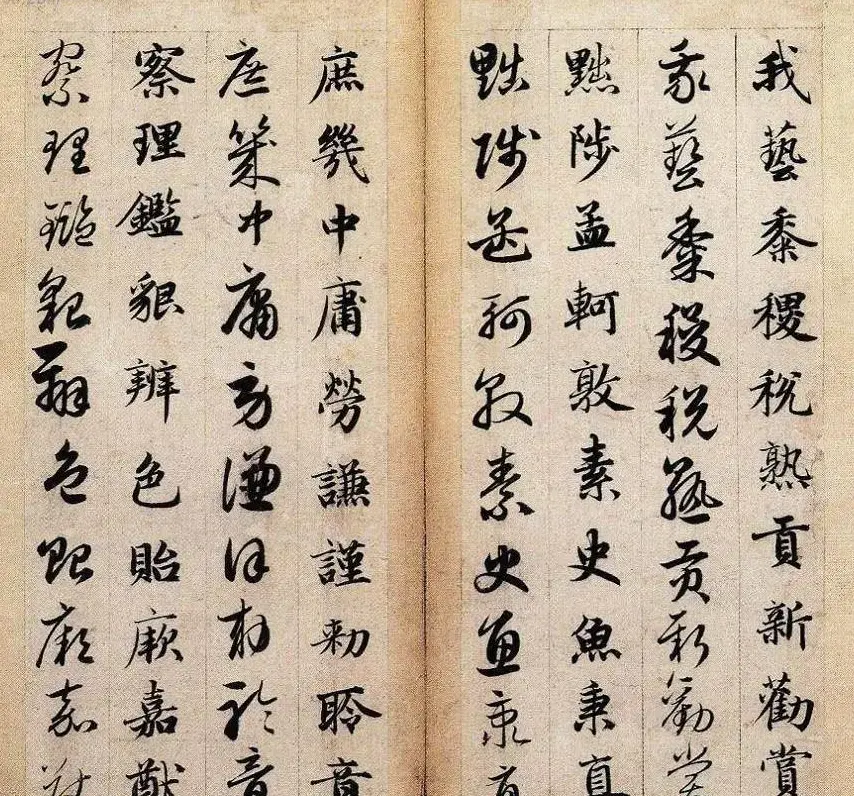 我藝黍稷税熟貢新勸賞
我藝黍稷税熟貢新勸賞
黜陟孟軻敦素史魚秉直
黜陟孟軻敦素史魚秉直
庶幾中庸勞謙謹勅聆音
庶幾中庸勞謙謹勅聆音
察理鑑貌辨色貽厥嘉猷
察理鑑貌辨色貽厥嘉猷